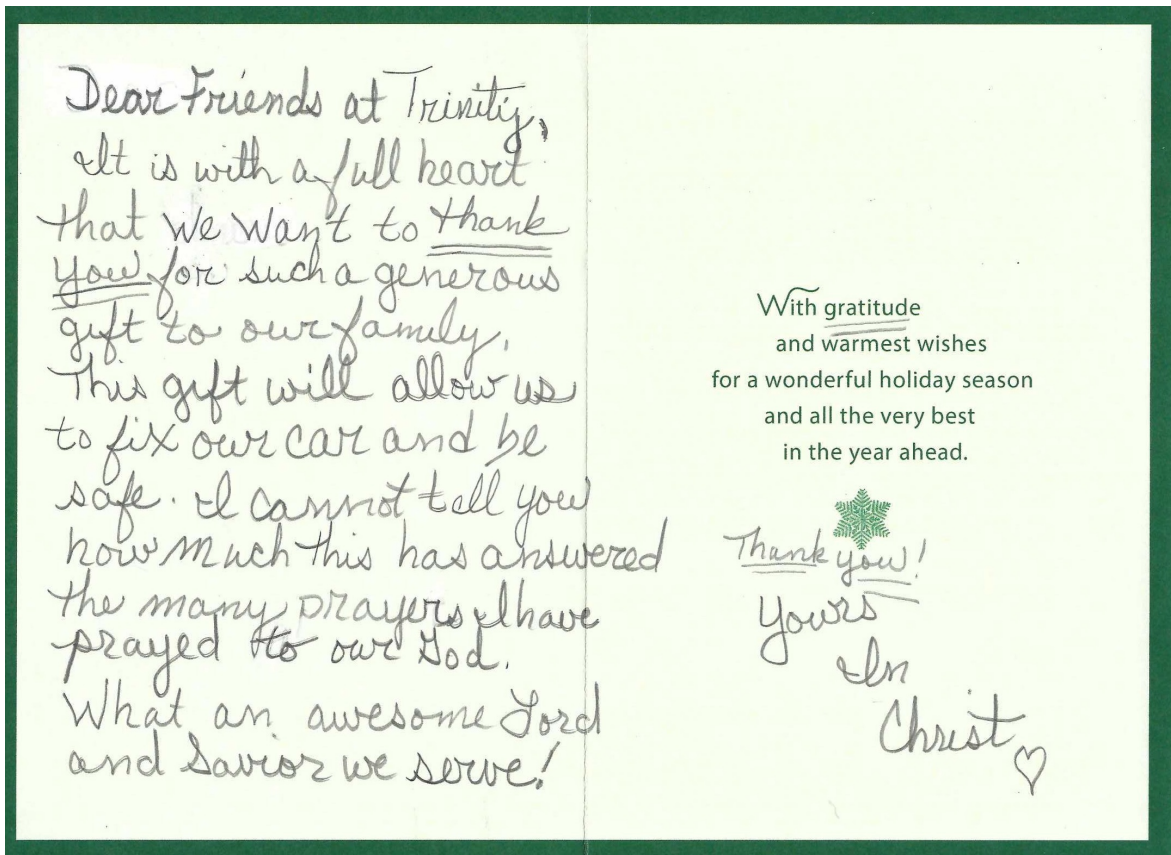 Dear Friends at Trinity,
It is with a full heart
that we want to thank
you for such a generous
gift to our family.
This gift will allow us
to fix our car and be
safe. I cannot tell you
how much this has answered
the many prayers I have
prayed to our God.
What an awesome Lord
and Savior we serve!
With gratitude
and warmest wishes
for a wonderful holiday season
and all the very best
in the year ahead.
Thank you!
Yours
In
Christ